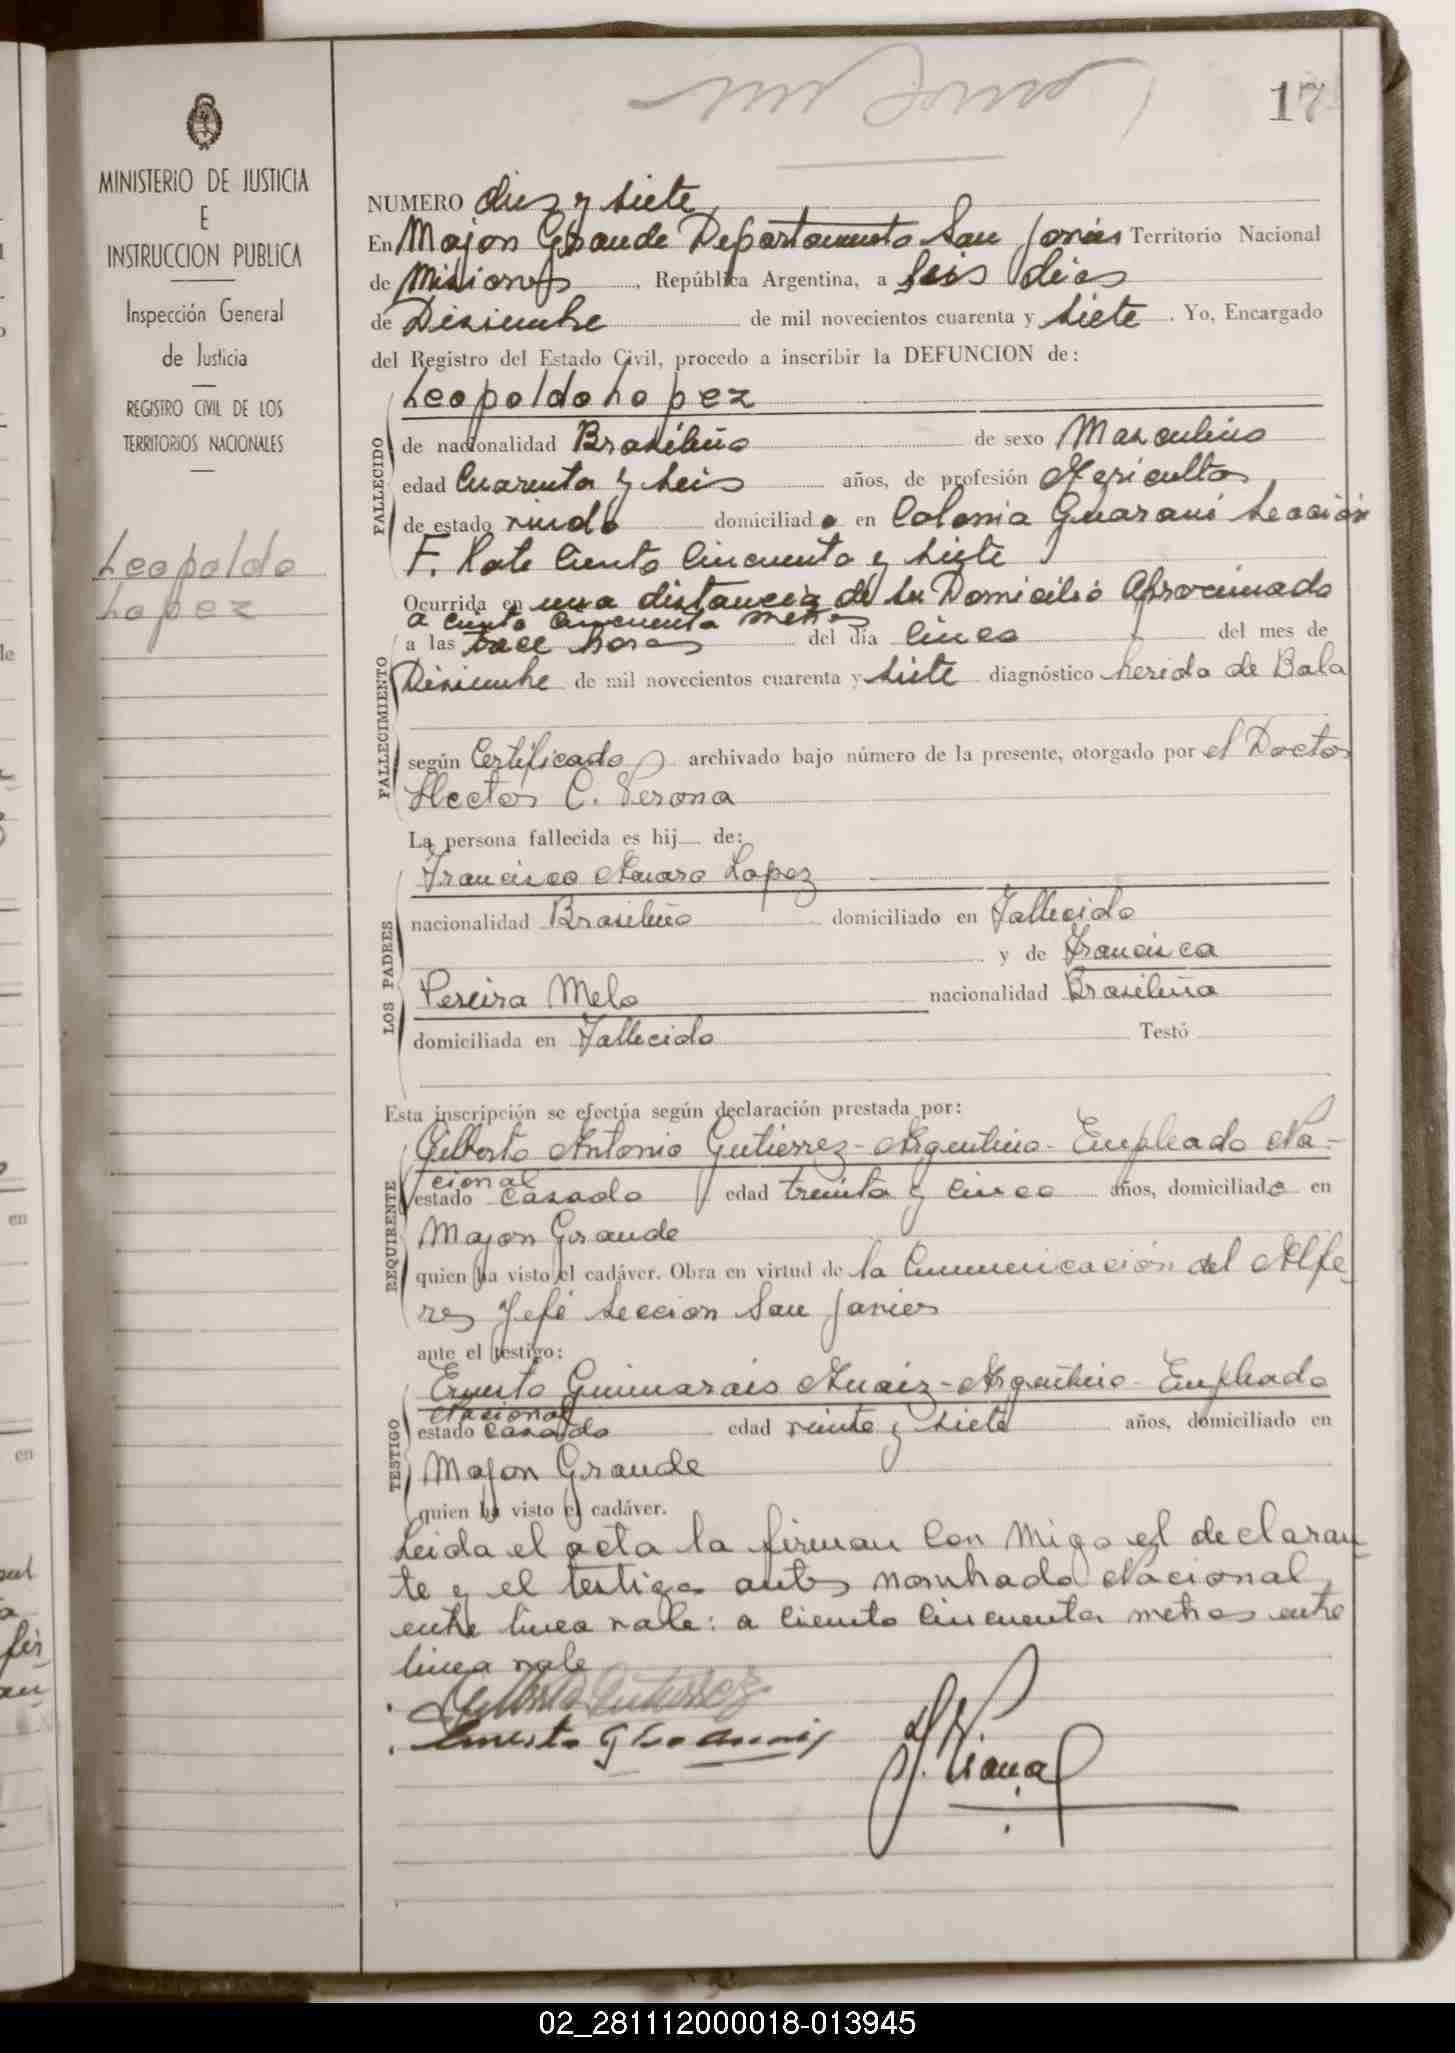 17
MINISTERIO DE JUSTICIA
E
INSTRUCCION PUBLICA
Inspección General
de Justicia
REGISTRO CIVIL DE LOS
TERRITORIOS NACIONALES
Leopoldo
Lopez
NUMERO diez y siete
En Mojon Grande Departamento San Javier Territorio Nacional
de Misiones, República Argentina, a seis dias
de Disiembre de mil novecientos cuarenta y siete. Yo, Encargado
del Registro del Estado Civil, procedo a inscribir la DEFUNCION de:
Leopoldo Lopez
FALLECIDO
de nacionalidad Brasileño de sexo Masculino
edad Cuarenta y seis años, de profesión Agricultor
de estado viudo domiciliado en Colonia Guarani Seccion
F. Lote Ciento Cincuenta y siete
Ocurrida en una distancia de su Domicilio Aprocimado
a ciento cincuenta metros
FALLECIMIENTO
a las trece horas del día cinco del mes de
Disiembre de mil novecientos cuarenta y siete diagnóstico herida de Bala
según Certificado archivado bajo número de la presente, otorgado por el Doctor
Hector C. Perona
La persona fallecida es hij de:
Francisco Amaro Lopez
LOS PADRES
nacionalidad Brasileño domiciliado en Fallecido
y de Francisca
Pereira Melo nacionalidad Brasileña
domiciliada en Fallecido Testó
Esta inscripción se efectúa según declaración prestada por:
Gilberto Antonio Gutierrez - Argentino - Empleado Na-
cional
REQUIRENTE
estado casado edad treinta y cinco años, domiciliado en
Mojon Grande
quien ha visto el cadáver. Obra en virtud de la Cumunicación del Alfe
res Jefe Seccion San Javier
ante el testigo:
Ernesto Guimarais - Argentino - Empleado
Nacional
TESTIGO
estado casado edad veinte y siete años, domiciliado en
Mojon Grande
quien ha visto el cadáver.
Leida el acta la firman Con Migo el declaran
te y el testigo antes nombrado Nacional
entre linea vale: a Ciento Cincuenta metros entre
linea vale
Gilberto Gutierrez
Ernesto G
02_281112000018-013945